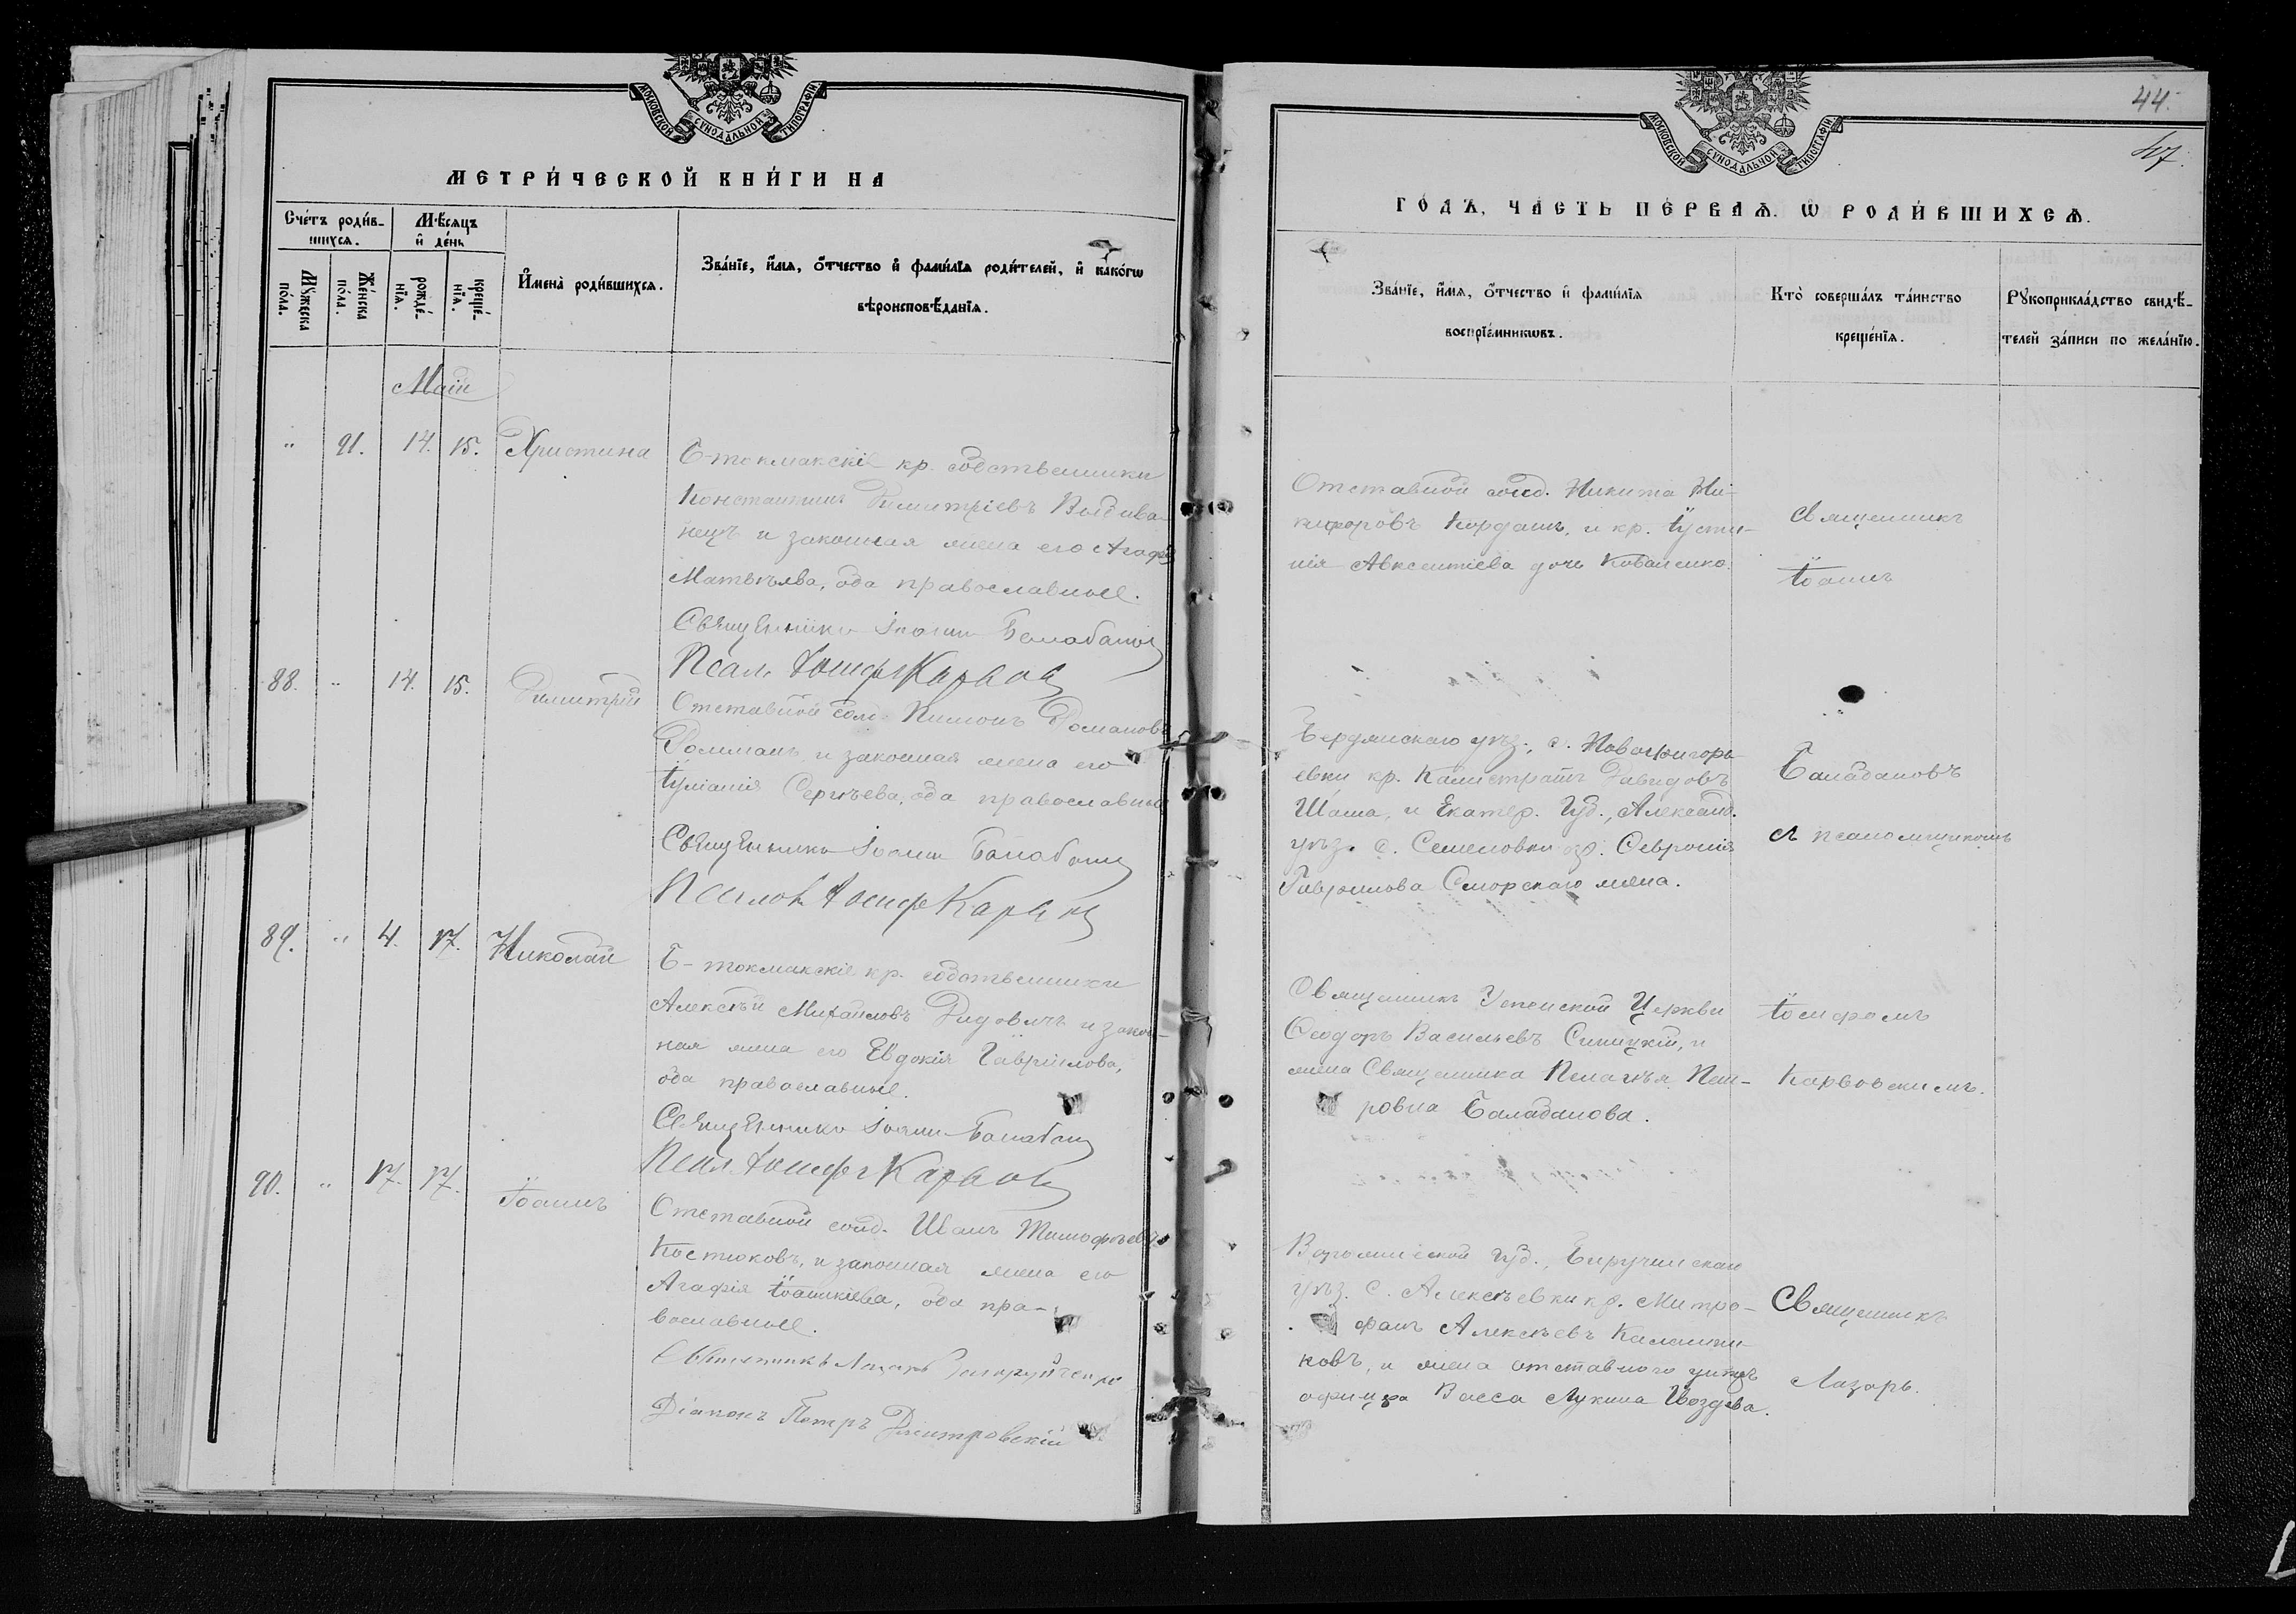 МОСКОВСКОЙ СУНОДАЛЬНОЙ ТИПОГРАФІИ
МЕТРИ́ЧЕСКОЙ КНИ́ГИ НА
Сче́тъ роди́в-
шихся.
Мѣ́сяцъ
и҆ де́нь
Мꙋ́жеска
по́ла.
Же́нска
по́ла.
рожде́-
нїѧ.
креще́-
нїѧ.
И҆мена̀ роди́вшихся.
Зва́нїе, и҆́мѧ, ѻ҆́тчество и҆ фами́лїѧ роди́телей, и҆ како́гѡ
вѣроисповѣ́данїѧ.
Маій
" 91. 14. 15. Христина
Б-токмакскіе кр. собственники
Константинъ Димитріевъ
нецъ и законная жена его Агафія
Матвѣева, оба православные.
Священникъ Іоаннъ Балабановъ
Псал. Іосифъ Карвов
88. " 14. 15. Димитрій
Отставной солд. Романовъ
и законная жена его
Іуліанія Сергѣева, оба православные
Священникъ Іоаннъ Балабановъ
Псалом Іосифъ Карвов
89. " 4. 17. Николай
Б-токмакскіе кр. собственники
Алексѣй Михайловъ Дидовичъ и закон-
ная жена его Евдокія Гавріилова,
оба православные.
Священникъ Іоаннъ Балабановъ
Псал. Іосифъ Карвов
90. " 17. 17. Іоаннъ
Отставной солд. Иванъ Тимофѣевъ
Костюковъ, и законная жена его
Агафія Іоанникіева, оба пра-
вославные.
Священникъ Лазарь
Діаконъ Петръ Димитровскій
44.
47.
МОСКОВСКОЙ СУНОДАЛЬНОЙ ТИПОГРАФІИ
ГО́ДЪ, ЧА́СТЬ ПЕ́РВАѦ. Ѡ҆ РОДИ́ВШИХСѦ.
Зва́нїе, и҆́мѧ, ѻ҆́тчество и҆ фами́лїѧ
воспрїе́мникѡвъ.
Кто̀ соверша́лъ та́инство
креще́нїѧ.
Рꙋкоприкла́дство свидѣ́-
телей за́писи по жела́нїю.
Отставной солд. Никита Ни-
кифоровъ Кордашъ, и кр. Іусти-
нія Авксентіева дочь Коваленко.
Священникъ
Іоаннъ
Бердянскаго уѣз., с. Новогригорь-
евки кр. Калистратъ Давидовъ
Шаша, и Екатер. Губ., Александ.
уѣз. с. Семеновки кр. Февронія
Гавріилова Сморскаго жена.
Балабановъ
съ псаломщикомъ
Священникъ Успенской Церкви
Ѳеодоръ Васильевъ Синицкій, и
жена Священника Пелагѣя Пет-
ровна Балабанова.
Іосифомъ
Карвовскимъ.
Воронежской Губ., Бирученскаго
уѣз. с. Алексѣевки кр. Митро-
фанъ Алексѣевъ Калашни-
ковъ, и жена отставного унтеръ
офицера Васса Лукина Гвоздева.
Священникъ
Лазарь.